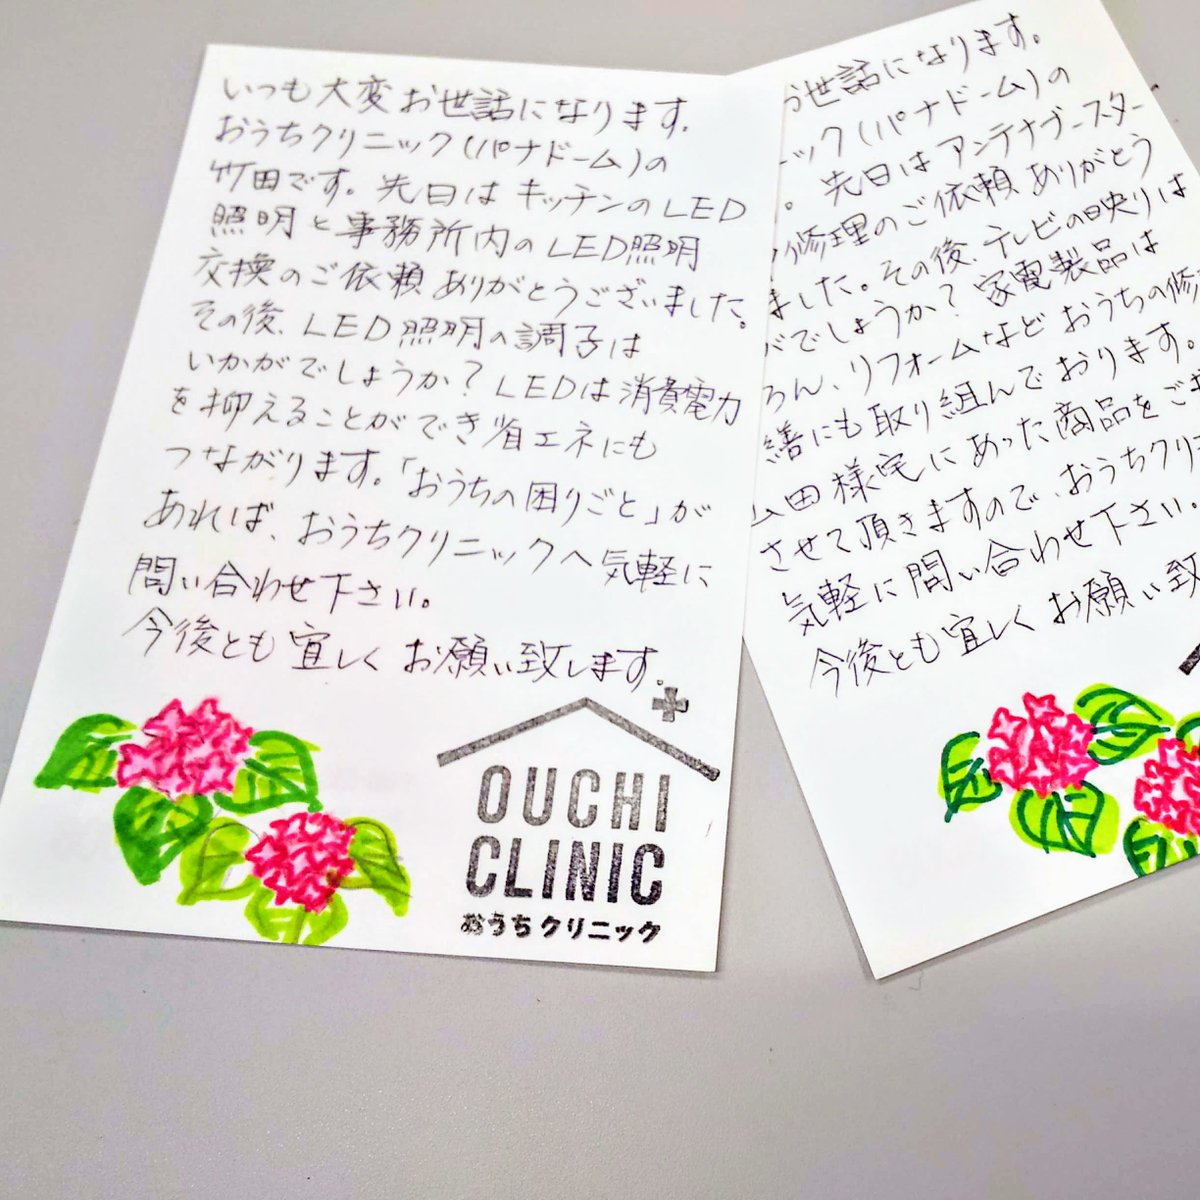 いつも大変お世話になります。
おうちクリニック(パナドーム)の
竹田です。先日はキッチンのLED
照明と事務所内のLED照明
交換のご依頼ありがとうございました。
その後、LED照明の調子は
いかがでしょうか?LEDは消費電力
を抑えることができ省エネにも
つながります。「おうちの困りごと」が
あれば、おうちクリニックへ気軽に
問い合わせ下さい。
今後とも宜しくお願い致します。
OUCHI
CLINIC
おうちクリニック
お世話になります。
ニック(パナドーム)の
。先日はアンテナブースター
修理のご依頼ありがとう
ました。その後、テレビの映りは
がでしょうか?家電製品は
ろん、リフォームなどおうちの修
繕にも取り組んでおります。
山田様宅にあった商品をご
させて頂きますので、おうちクリニ
気軽に問い合わせ下さい。
今後とも宜しくお願い致